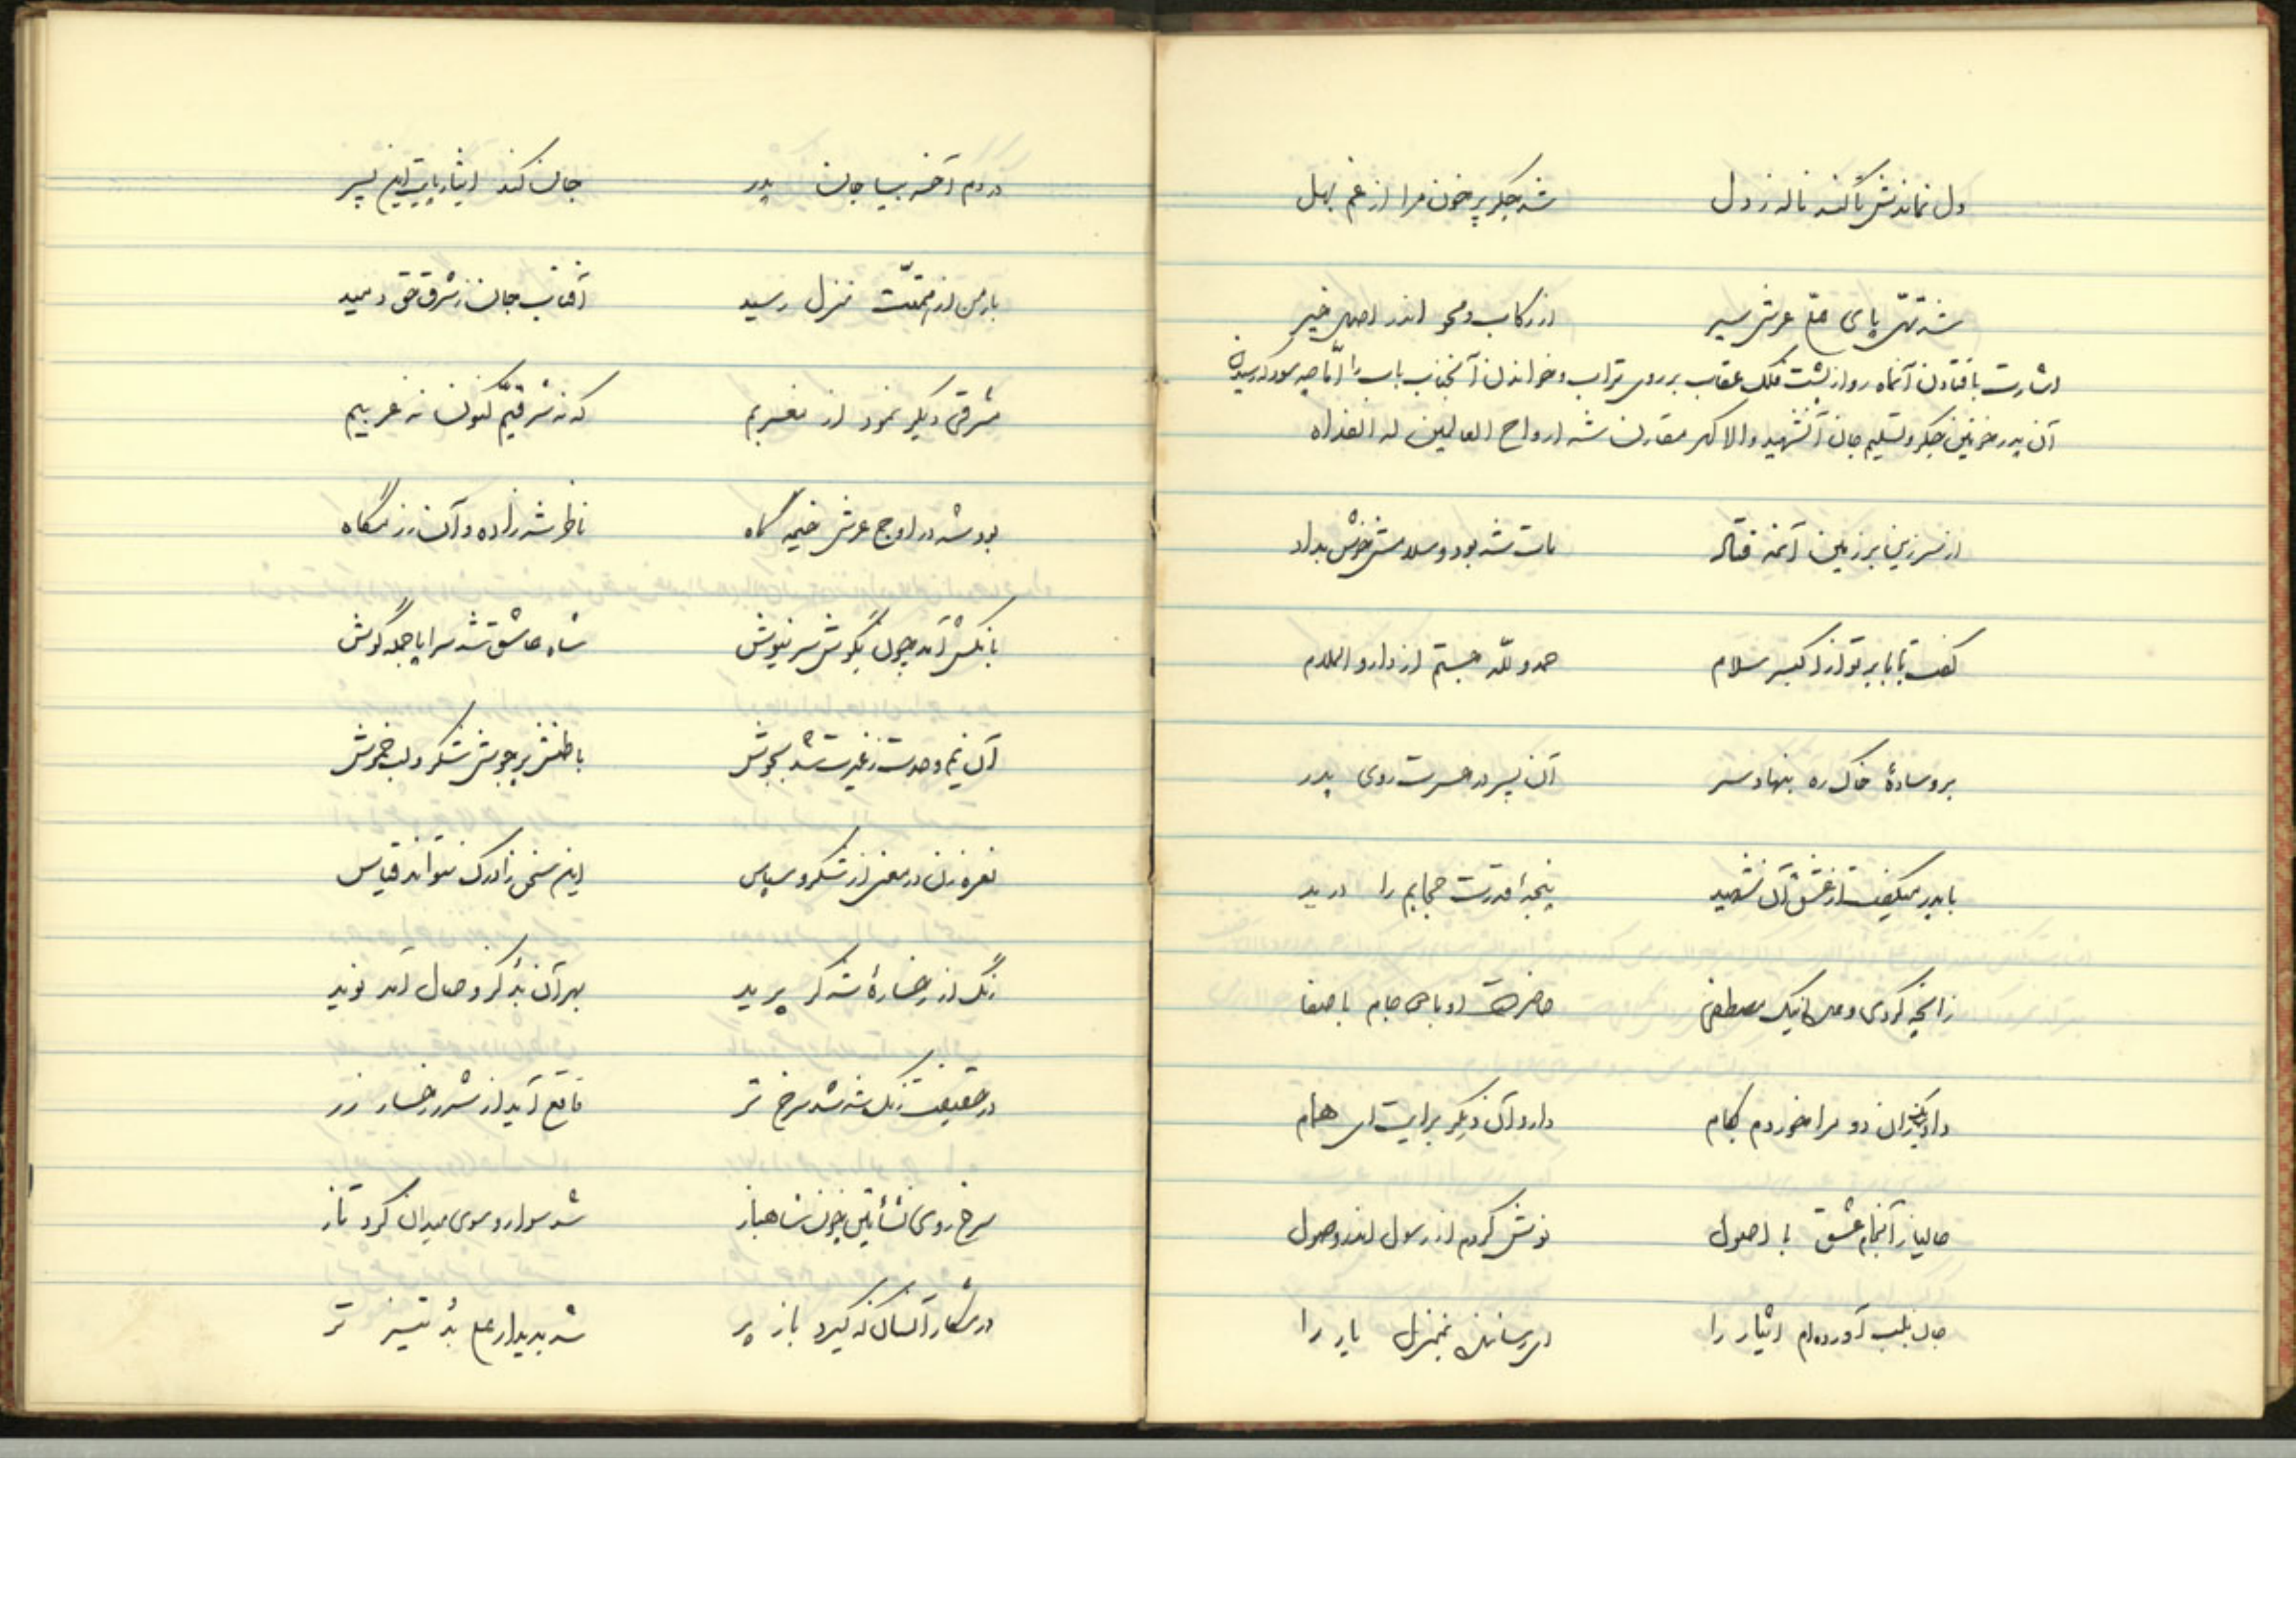 دل نماندش تا کند ناله ز دل شد جگر پر خون مرا از غم بهل
شد تهی پای عرش سیر از رکاب و محو اندر اصل خیر
اشارت بافتادن آنماه رو از پشت فلک عقاب بر روی تراب و خواندن آنجناب باب را اما چه سود که رسیدن
آن پدر خونین جگر و تسلیم جان آنشهید والا گهر مقارن شد ارواح العالمین له الفداه
از سر زین بر زمین آنمه فتاد مات شه بود و سلامش خوش بداد
گفت بابا بر تو از اکبر سلام حمد و لله جستم از دار و الملام
بر وسادهٔ خاک ره بنهاد سر آن پسر در حسرت روی پدر
با پدر میگفت از عشق آن شهید پنجهٔ قدرت حجابم را درید
زانچه کردی وعده نیک مصطفی حاضر است او با دو جام با صفا
داد یکزان دو مرا خوردم بکام دارد آن دیگر برایت ای همام
حالیا زآنجام عشق با اصول نوش کردم از رسول اندر وصول
جان بلب آورده‌ام ایثار را ای رسانده بمنزل یار را
در دم آخر بیا جان پدر جان کند ایثار پایت این پسر
بار من از همتت منزل رسید آفتاب جان ز شرق حق دمید
مشرقی دیگر نمود از مغربم که نه شرقیم کنون نه غربیم
بود شه در اوج عرش خیمه گاه ناظر شه‌زاده و آن رزمگاه
بانگش آمد چون بگوش سر نیوش شاه عاشق شد سراپا جمله گوش
آن یم وحدت ز غیرت شد بجوش باطنش پر جوش شکر و لب خموش
نعره زن در معنی از شکر و سپاس این سخن را درک نتواند قیاس
رنگ از رخسارهٔ شه گر پرید بهر آن بد کز وصال آمد نوید
در حقیقت رنگ شه شد سرخ تر مانع آید از شرر رخسار زر
سرخ روی نشأتین چون شاهباز شد سوار و سوی میدان کرد تاز
در شکار آنسان که گیرد باز پر شد بدیدار علی بد تیز تر